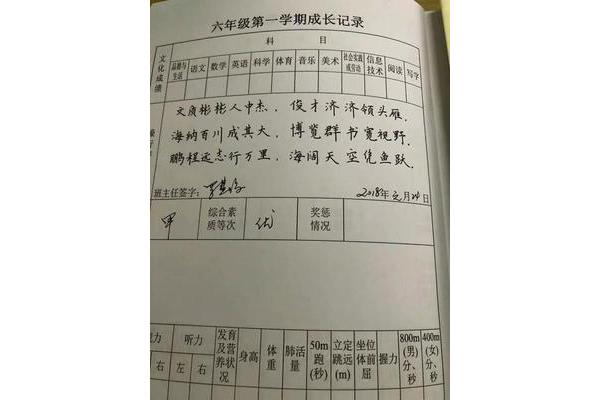 六年级第一学期成长记录
科 目
文化成绩
品德与生活 语文 数学 英语 科学 体育 音乐 美术 社会实践或劳动 信息技术 阅读 写字
文质彬彬人中杰，俊才济济领头雁，
海纳百川成其大，博览群书宽视野，
鹏程远志行万里，海阔天空任鱼跃。
班主任签字：
2018年元月24日
甲 综合素质等次 优 奖惩情况
力 听力 发育及营养状况 身高 体重 肺活量 50m跑(秒) 立定跳远(m) 坐位体前屈 握力 800m(男)分、秒 400m(女)分、秒
右 左 右